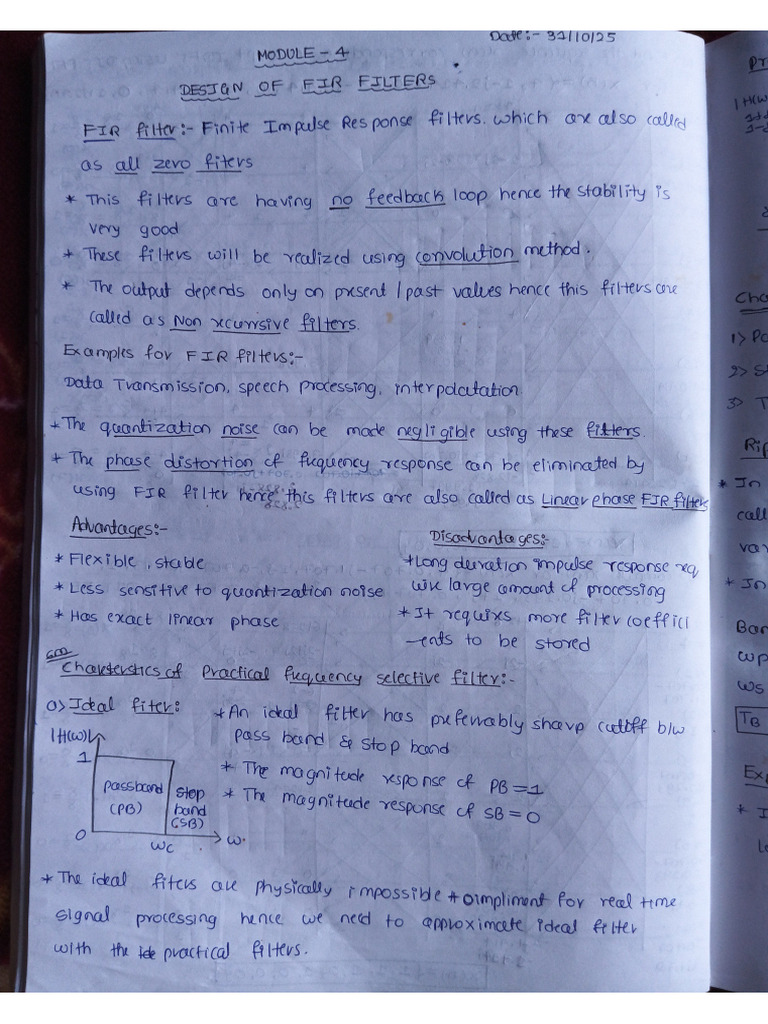 Date:- 31/10/25
MODULE - 4
DESIGN OF FIR FILTERS
FIR filter:- Finite Impulse Response filters. which are also called
as all zero fiters
* This filters are having no feedback loop hence the stability is
very good
* These filters will be realized using convolution method.
* The output depends only on present / past values hence this filters are
called as Non recurrsive filters.
Examples for FIR filters:-
Data Transmission, speech processing, interpolatation
* The quantization noise can be made negligible using these filters.
* The phase distortion of frequency response can be eliminated by
using FIR filter hence this filters are also called as Linear phase FIR filters
Advantages:-
* Flexible, stable
* Less sensitive to quantization noise
* Has exact linear phase
Disadvantages:-
* Long duration impulse response req
uire large amount of processing
* It requires more filter coeffici
-ents to be stored
Charkterstics of Practical frequency selective filter:-
a) Ideal fiter:
* An ideal filter has preferrably sharp cutoff b/w
pass band & stop band
* The magnitude response of PB = 1
* The magnitude response of SB = 0
|H(w)|
1
passband
(PB)
stop
band
(SB)
0
wc
w
* The ideal fiters are physically impossible to impliment for real time
signal processing hence we need to approximate ideal filter
with the practical filters.
Pr
|H(w
Cha
1>
2> S
3> T
Rip
* In
call
var
* In
Ban
wp
ws
TB
Ex
* I